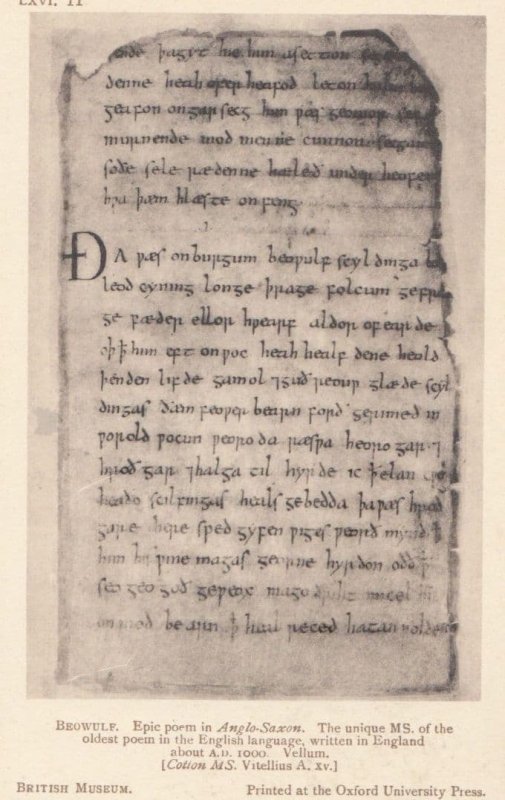 LXVI. 11
ende þagyt hie him asetton
denne heah ofer heafod leton
geafon ongarsecg him pæs geomor
murnende mod men ne cunnon secgan
soðe sele rædenne hæleð under heofe
hpa þæm hlæste onfeng
ÐA pæs onburgum beopulf scyldinga
leod cyning longe þrage folcum gefræ
ge fæder ellor hpearf aldor of earde
oþ þ him eft onpoc heah healf dene heold
þenden lifde gamol ⁊guð reoup glæde scyl
dingas ðæm feoper bearn forð gerimed in
porold pocun peoro da ræspa heoro gar ⁊
hroð gar ⁊halga til hyrde ic þ elan
heaðo scilfingas heals gebedda þa pæs hroð
gare here sped gyfen piges peorð mynd þ
him his pine magas georne hyrdon oðð þ
seo geo goð gepeox mago driht micel
on mod be arn þ heal reced hatan polde
BEOWULF. Epic poem in Anglo-Saxon. The unique MS. of the
oldest poem in the English language, written in England
about A.D. 1000. Vellum.
[Cotton MS. Vitellius A. xv.]
BRITISH MUSEUM. Printed at the Oxford University Press.